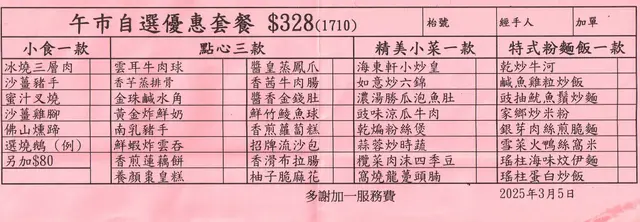 午市自選優惠套餐 $328(1710) 枱號 經手人 加單
小食一款 點心三款 精美小菜一款 特式粉麵飯一款
冰燒三層肉 雲耳牛肉球 醬皇蒸鳳爪 海東軒小炒皇 乾炒牛河
沙薑豬手 香芋蒸排骨 香茜牛肉腸 如意炒六錦 鹹魚雞粒炒飯
蜜汁叉燒 金珠鹹水角 醬香金錢肚 濃湯勝瓜泡魚肚 豉抽魷魚鬚炒麵
沙薑雞腳 黃金炸鮮奶 鮮竹鯪魚球 豉味涼瓜牛肉 家鄉炒米粉
佛山燻蹄 南乳豬手 香煎蘿蔔糕 乾煸粉絲煲 銀芽肉絲煎脆麵
選燒鵝(例) 鮮蝦炸雲吞 招牌流沙包 蒜蓉炒時蔬 雪菜火鴨絲窩米
另加$80 香煎蓮藕餅 香滑布拉腸 欖菜肉沫四季豆 瑤柱海味炆伊麵
養顏棗皇糕 柚子脆麻花 窩燒龍躉頭腩 瑤柱蛋白炒飯
多謝加一服務費 2025年3月5日